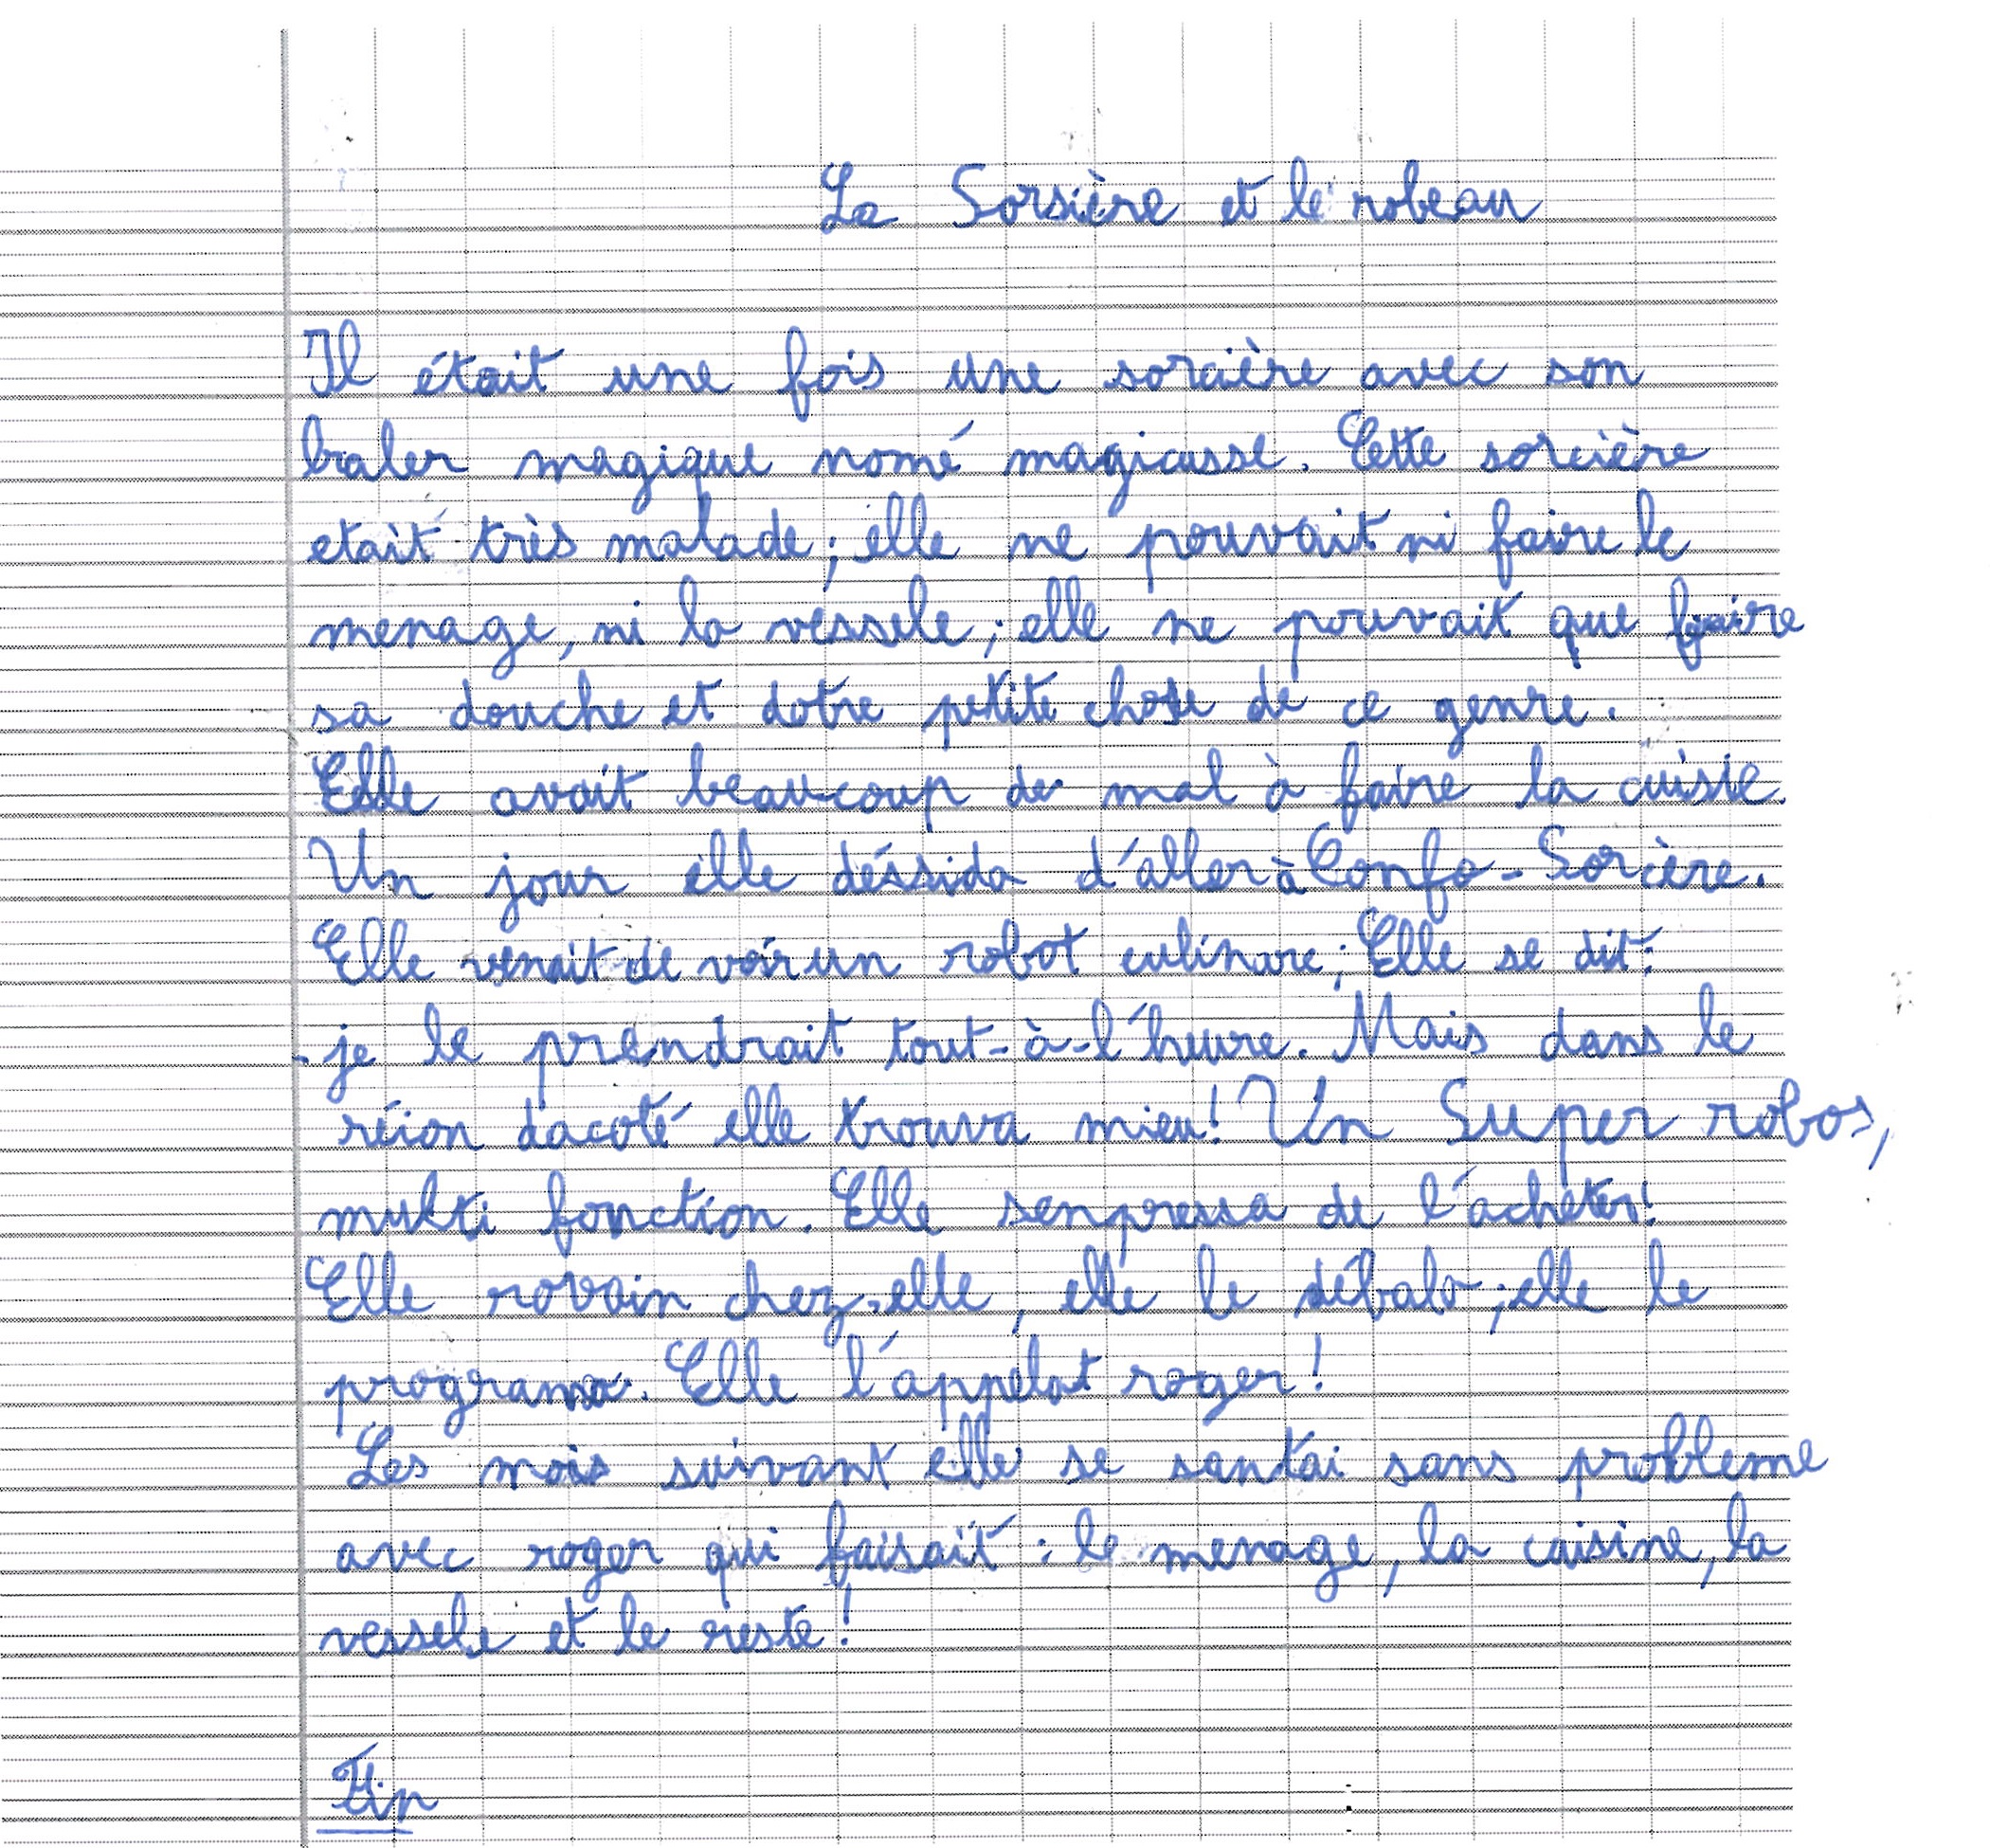 La Sorsière et le robeau
Il était une fois une sorcière avec son
baler magique nomé magicusse. Cette sorcière
etait très malade; elle ne pouvait ni faire le
menage, ni la véssele; elle ne pouvait que faire
sa douche et dotre petite chose de ce genre.
Elle avait beaucoup de mal à faire la cuisie.
Un jour elle déssida d'aller à Confo-Sorcière.
Elle venait de voir un robot culinare; Elle se dit:
-je le prendrait tout-à-l'heure. Mais dans le
réion dacoté elle trouva mieu! Un Super robos,
multi fonction. Elle senpressa de l'acheter!
Elle rovain chez-elle, elle le débala; elle le
programa. Elle l'appelat roger!
Les mois suivant elle se santai sans probleme
avec roger qui faisait: le menage, la caisine, la
vessele et le reste!
Fin